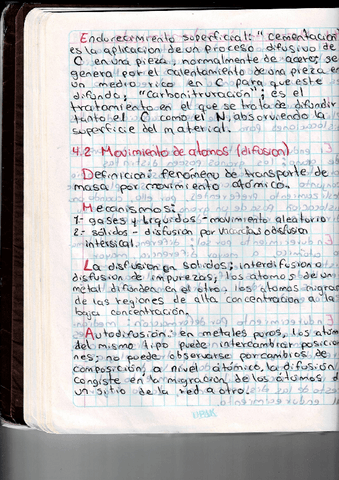 Endurecimiento superficial: "cementación"
es la aplicación de un proceso difusivo de
C en una pieza, normalmente de acero, se
genera por el calentamiento de una pieza en
un medio rico en C para que este
difunda, "Carbonitruración"; es el
tratamiento en el que se trata de difundir
tanto el C como el N, absorviendo la
superficie del material.
4.2 Movimiento de atomos (difusion)
Definicion: fenomeno de transporte de
masa por movimiento atómico.
Mecanismos:
1- gases y liquidos - movimiento aleatorio
2- solidos - disfusion por vacancias o disfusion
intersical.
La disfusion en solidos; interdifusion o
disfusion de impurezas, los atomos de un
metal difunden en el otro. los atomos migran
de las regiones de alta concentracion a la
baja concentración.
Autodifusión: en metales puros, los atom
del mismo tipo puede intercambiar posicio
nes, no puede observarse por cambios de
composición, a nivel atómico, la difusión
consiste en la migracion de los átomos, d
un sitio de la red a otro.